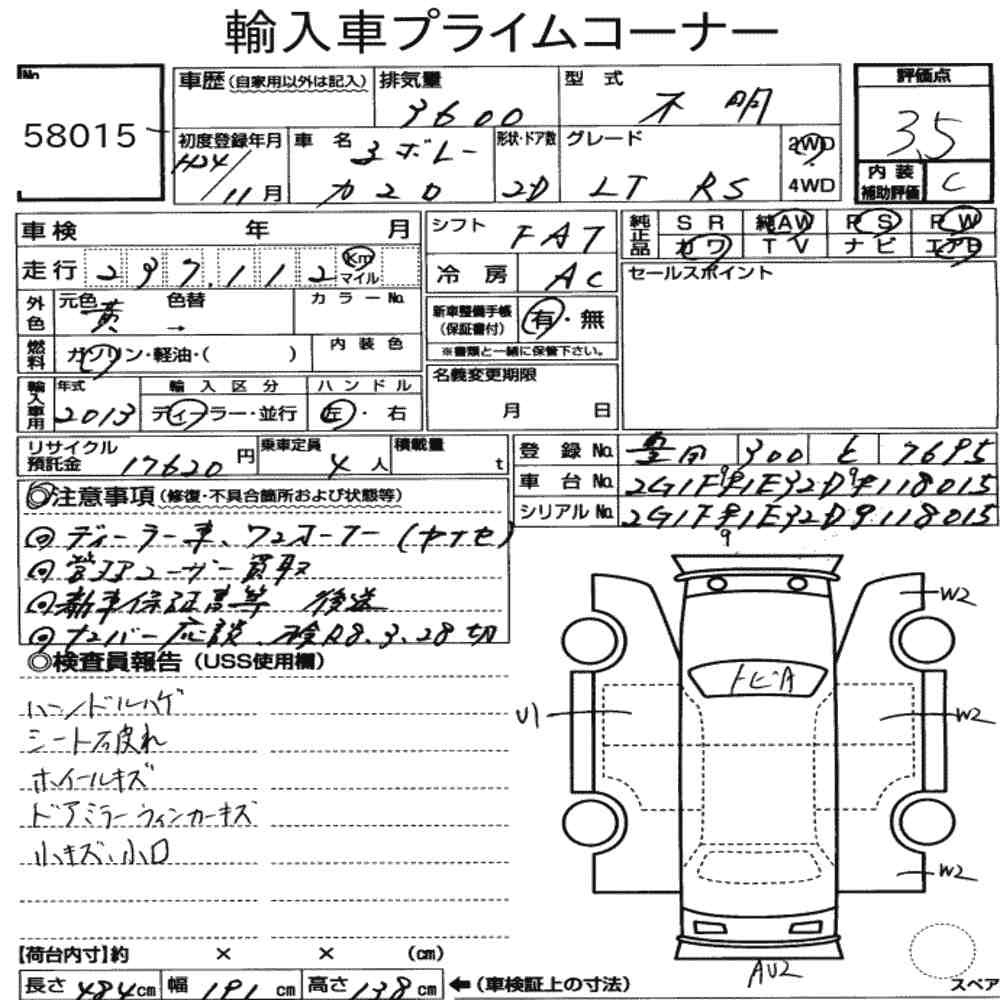 輸入車プライムコーナー
No.
58015
車歴(自家用以外は記入)
排気量
3600
型 式
不 明
評価点
3.5
初度登録年月
H24/11月
車 名
シボレー
カマロ
形状・ドア数
2D
グレード
LT RS
2WD
4WD
内 装
補助評価
C
車検 年 月
シフト
FAT
純正品
SR 純AW PS PW
カワ TV ナビ エアB
走行 237,112
Km
マイル
冷 房
AC
セールスポイント
外色
元色
黄
色替
→
カ ラ ー No.
新車整備手帳
(保証書付)
有・無
※書類と一緒に保管下さい。
燃料
ガソリン・軽油・( )
内 装 色
輸入車用
年式
2013
輸 入 区 分
ディーラー・並行
ハ ン ド ル
左 ・ 右
名義変更期限
月 日
リサイクル
預託金
17620円
乗車定員
4人
積載量
t
登 録 No.
豊田 300 と 7695
車 台 No.
2G1F91E32D9118015
シリアル No.
2G1F91E32D9118015
9
◎注意事項(修復・不具合箇所および状態等)
◎ ディーラー車、ワンオーナー(ヤナセ)
◎ ユーザー買取
◎ 新車保証書等 後送
◎ ナンバー応談、検R8.3.28切
◎検査員報告(USS使用欄)
ハンドルハゲ
シート S皮れ
ホイールキズ
ドアミラーウィンカーキズ
小キズ、小凹
W2
トビA
U1
W2
W2
AU2
スペア
【荷台内寸】約 × × (cm)
長さ 484cm 幅 191cm 高さ 138cm
←(車検証上の寸法)